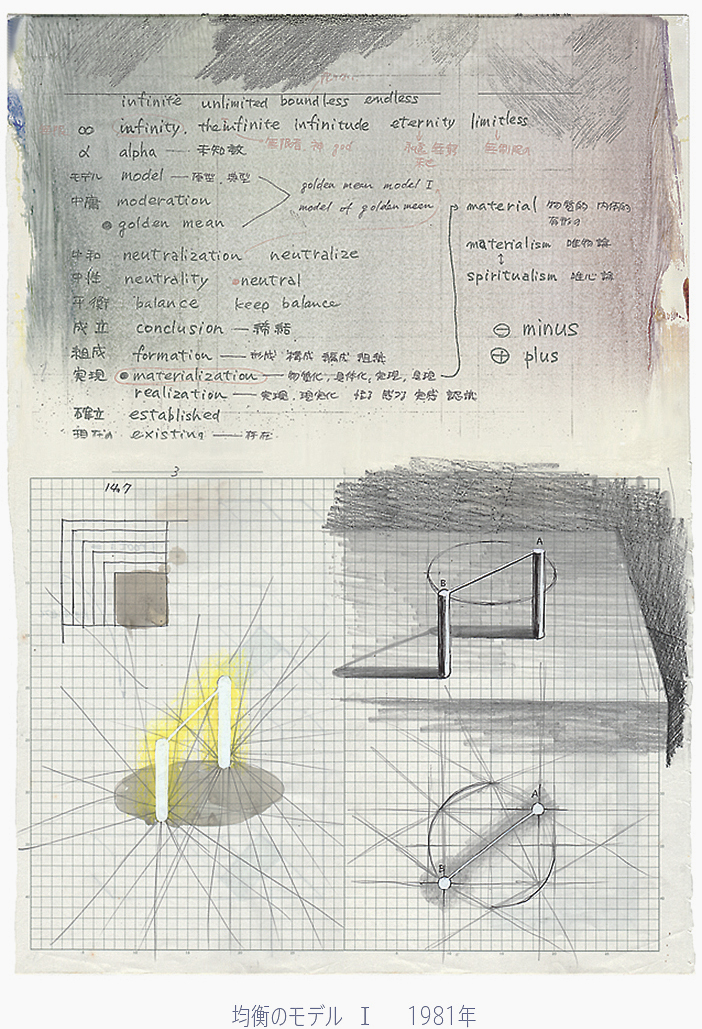 infinite unlimited boundless endless
∞ infinity. the infinite infinitude eternity limitless
無限者, 神 god
α alpha — 未知数
モデル model — 原型, 典型
golden mean model I
中庸 moderation
model of golden mean
material 物質的 内体的
golden mean
materialism 唯物論
中和 neutralization neutralize
spiritualism 唯心論
中性 neutrality neutral
平衡 balance keep balance
⊖ minus
成立 conclusion — 締結
⊕ plus
組成 formation — 形成 構成 組織
実現 materialization — 物質化, 具体化, 実現,
realization — 実現, 現実化 認識
確立 established
existing — 存在
3
14.7
A
B
A
B
均衡のモデル Ⅰ 1981年